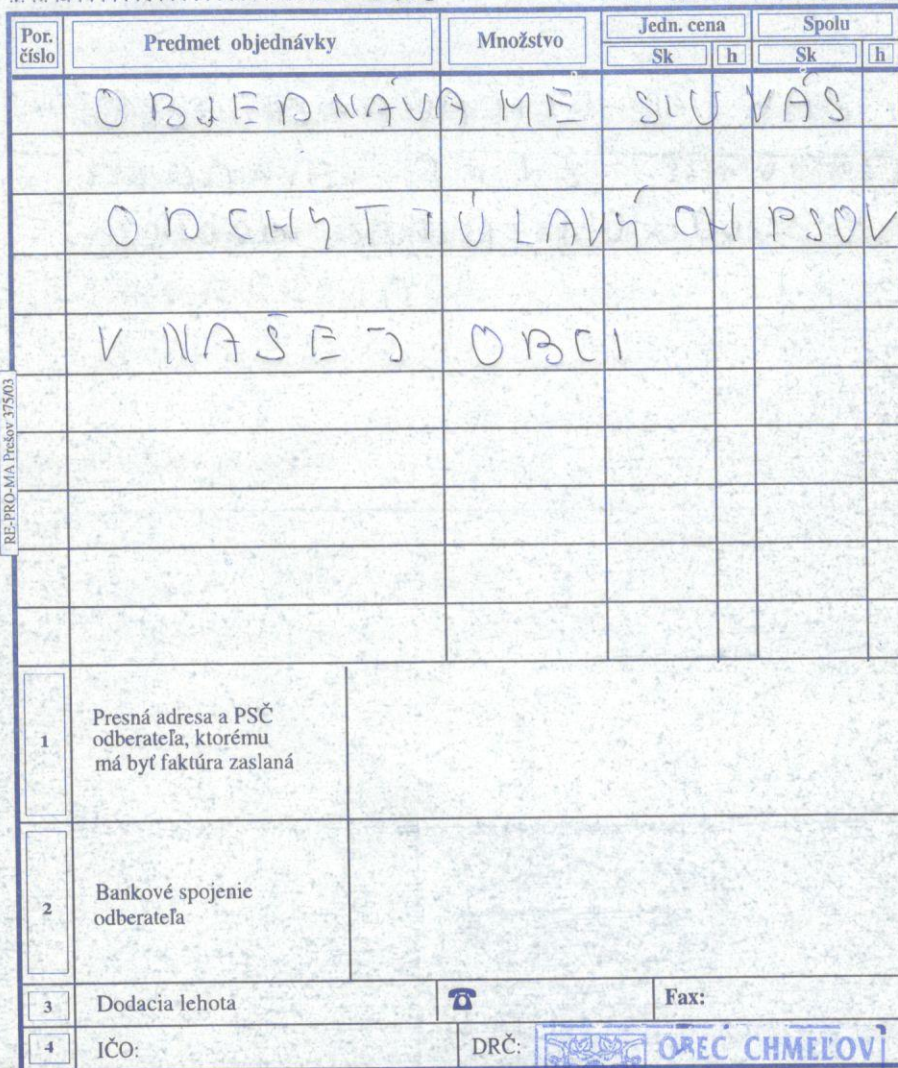 Por. číslo
Predmet objednávky
Množstvo
Jedn. cena
Spolu
Sk h Sk h
OBJEDNÁVAME SI U VÁS
ODCHYT TÚLAVÝCH PSOV
V NAŠEJ OBCI
RE-PRO-MA Prešov 375/03
1 Presná adresa a PSČ
odberateľa, ktorému
má byť faktúra zaslaná
2 Bankové spojenie
odberateľa
3 Dodacia lehota ☎ Fax:
4 IČO: DRČ: OBEC CHMEĽOV